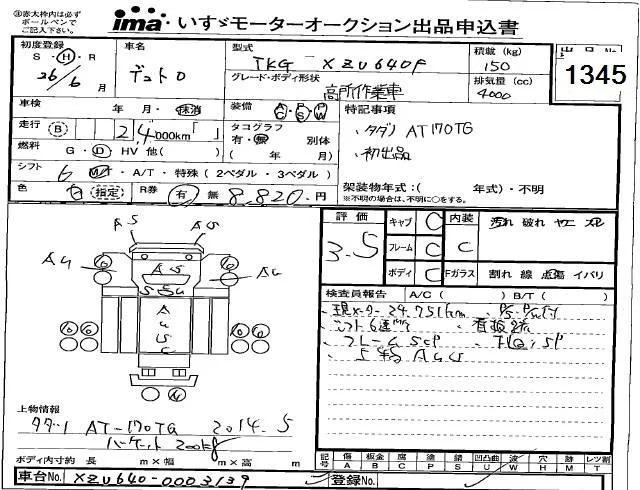 ㊟赤太枠内は必ず
ボールペンで
ご記入下さい。
ima・いすゞモーターオークション出品申込書
初度登録
S・H・R
26/6月
車名
デュトロ
型式
TKG-XZU640F
グレード・ボディ形状
高所作業車
積載(kg)
150
排気量(cc)
4000
出品No.
1345
車検
年・月・抹消
装備
A P A
C S W
特記事項
・タダノ AT170TG
・初出品
走行
B
24,000km「」
タコグラフ
有・無 別体
(年 月)
燃料
G・D HV 他( )
シフト
6 M/T・A/T・特殊(2ペダル・3ペダル)
架装物年式:( 年式)・不明
※不明の場合は、不明に○をする。
色
(指定)
R券
有 無 8,820.円
評価
3.5
キャブ C
フレーム C
ボディ C
内装
C
Fガラス
汚れ 破れ ヤニ スレ
割れ 線 点傷 イバリ
A5
A5
A4
A5
A4
検査員報告
A/C( )
B/T( )
・現メーター24.751km
・シフト6速
・看板跡
上物情報
タダノ AT-170TG 2014.5
バケット 200kg
ボディ内寸約 長 m×幅 m×高 m
記号
傷 A
板金 B
腐 C
塗 P
錆 S
凹凸凸 U
波 W
穴 H
跡 M
レツ割 T
車台No. XZU640-0003139
登録No.